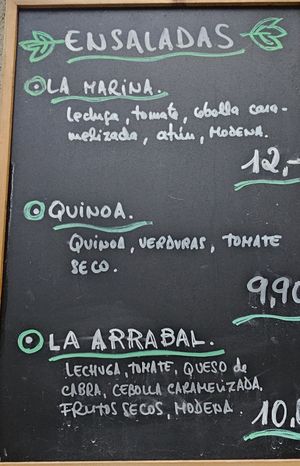 ENSALADAS
LA MARINA.
lechuga, tomate, cebolla cara-
melizada, atún, MODENA.
12,-
QUINOA.
QUINOA, VERDURAS, TOMATE
SECO.
9,90
LA ARRABAL.
LECHUGA, TOMATE, QUESO de
CABRA, CEBOLLA CARAMELIZADA,
FRUTOS SECOS, MODENA.
10,